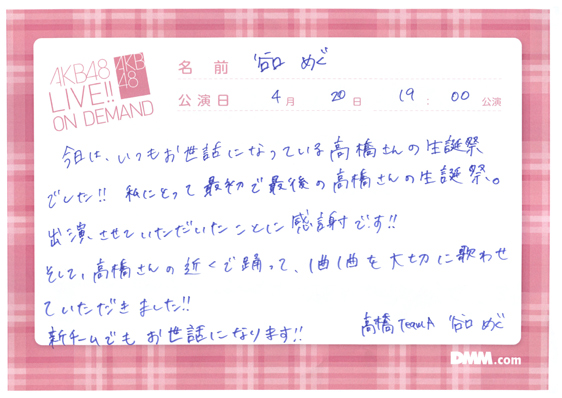 AKB48
LIVE!!
ON DEMAND
AKB
48
名前 谷口 めぐ
公演日 4月 20日 19:00 公演
今日は、いつもお世話になっている高橋さんの生誕祭
でした!! 私にとって最初で最後の高橋さんの生誕祭。
出演させていただいたことに感謝です!!
そして、高橋さんの近くで踊って、1曲1曲を大切に歌わせ
ていただきました!!
新チームでもお世話になります!!
高橋TeamA 谷口 めぐ
DMM.com